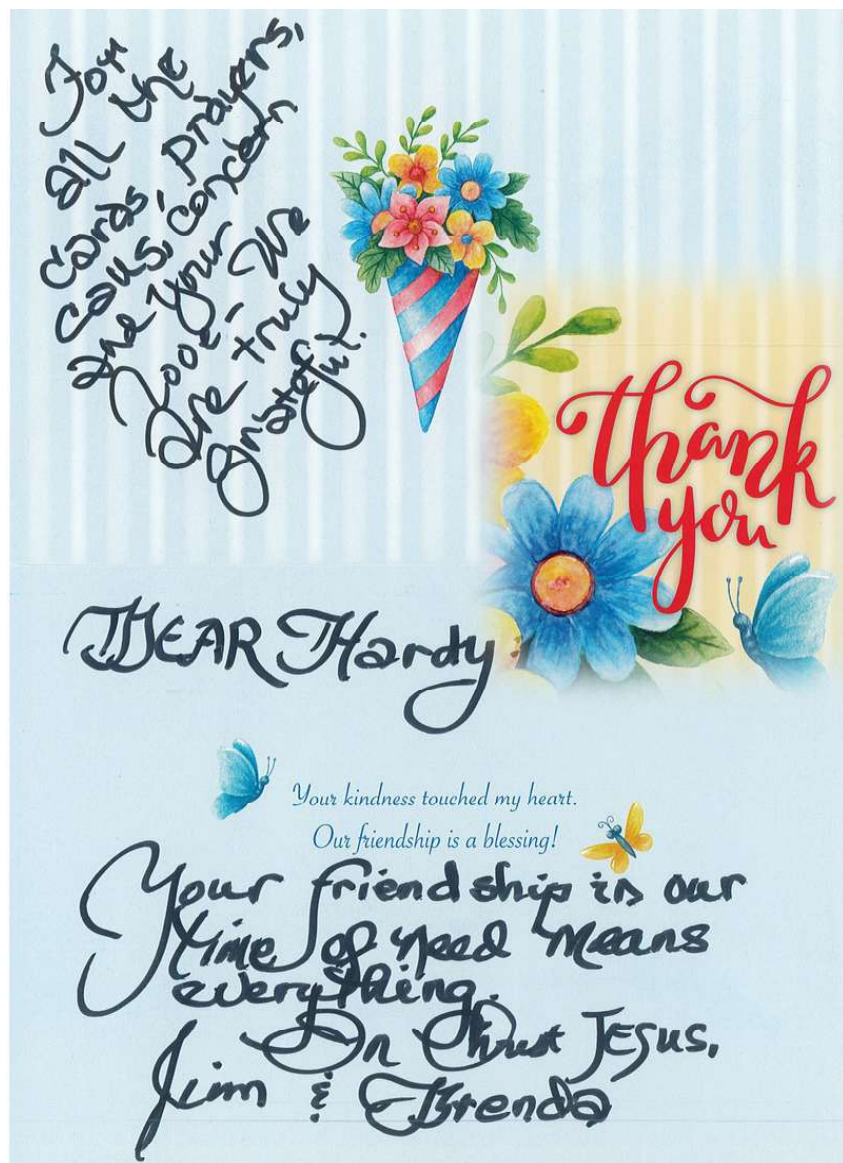 For
all the
cards, prayers,
calls, concern
and your
love. We
are truly
grateful.
thank
you
DEAR Hardy
Your kindness touched my heart.
Our friendship is a blessing!
Your friendship in our
time of need means
everything.
In Christ JESUS,
Jim & Brenda